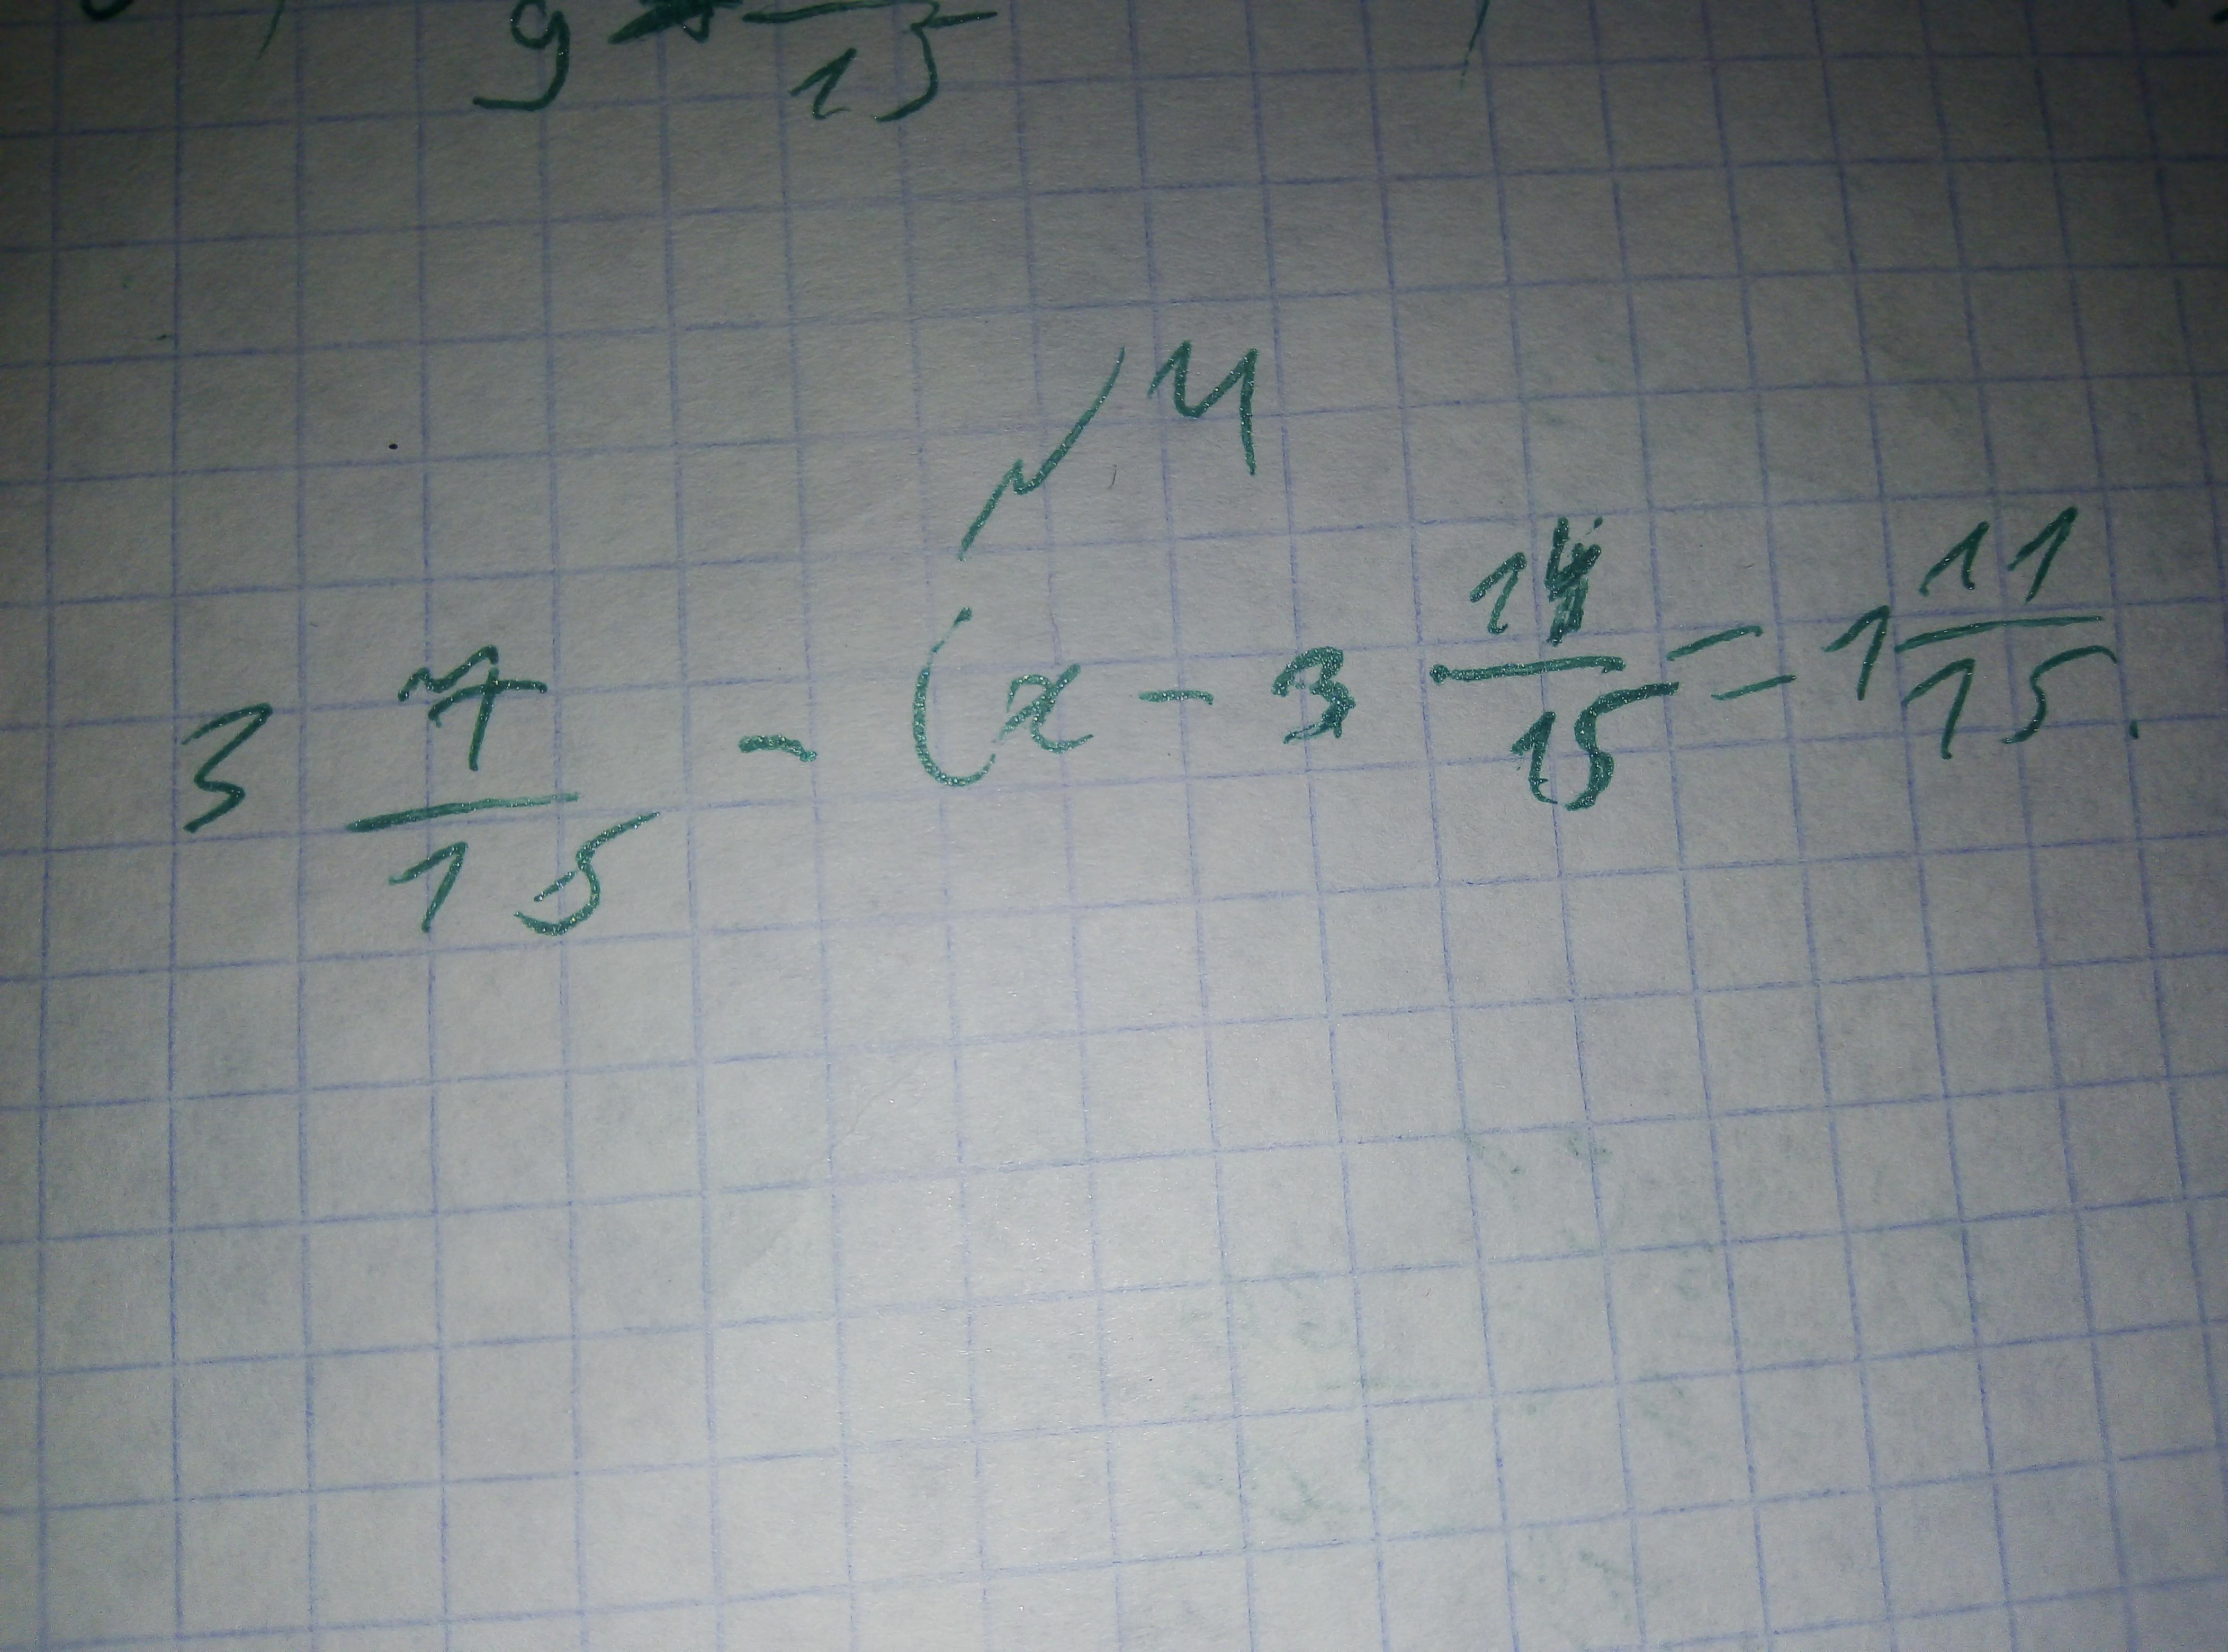 9 15
4
3 7/15 - (x - 3 14/15 = 1 11/15.